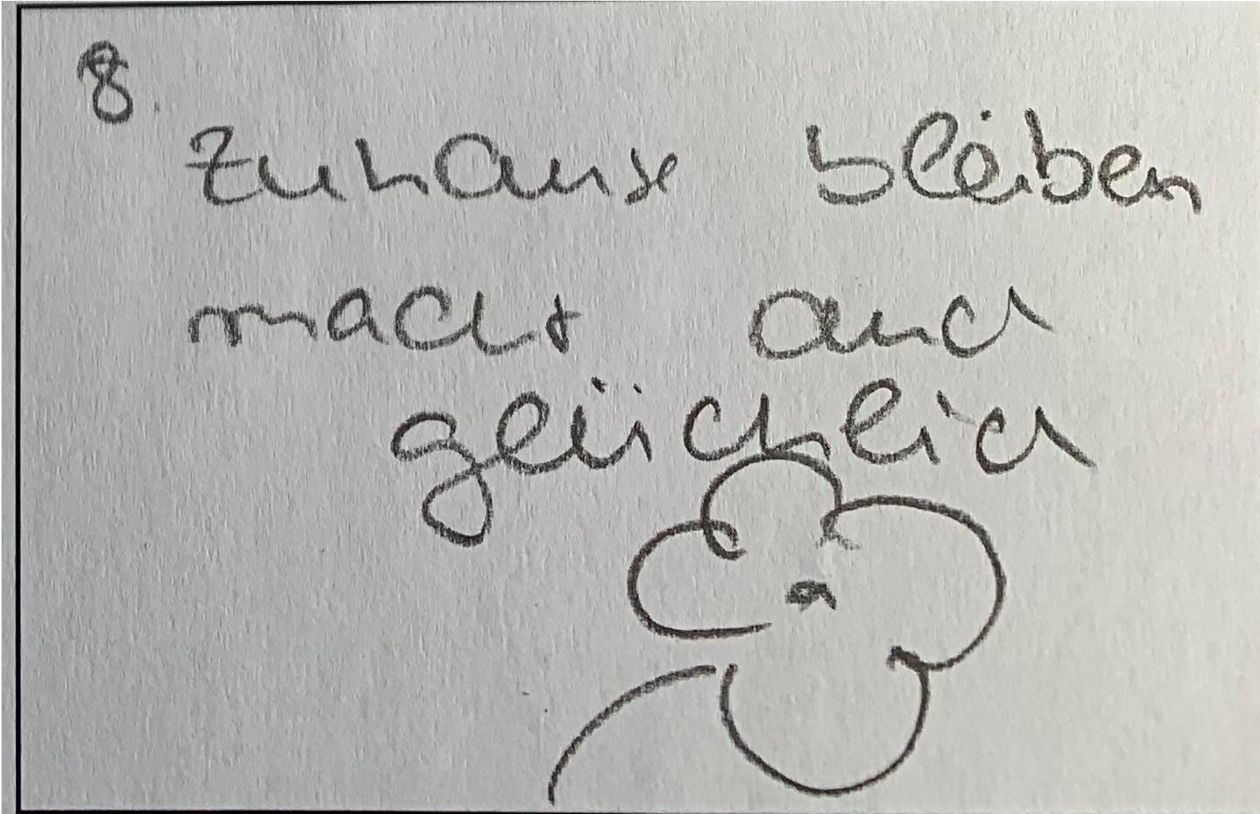 8.
Zuhause bleiben
macht auch
glücklich